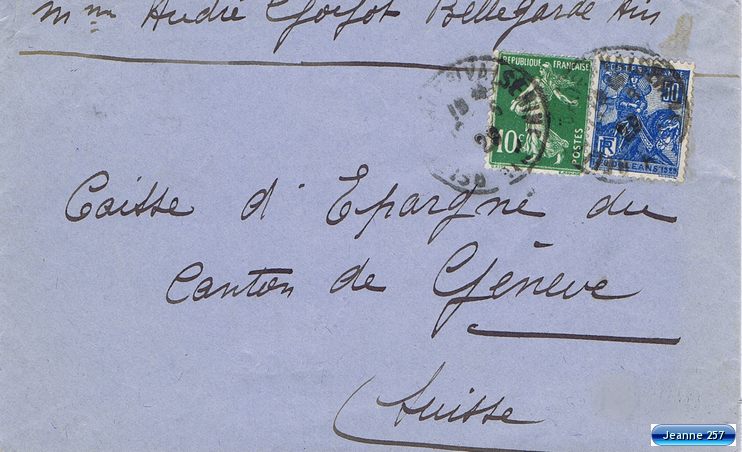 Mme André Goyot Bellegarde Ain
REPUBLIQUE FRANÇAISE
10c
POSTES
50
RF
ORLEANS
Caisse d'Epargne du
Canton de Genève
Suisse
Jeanne 257